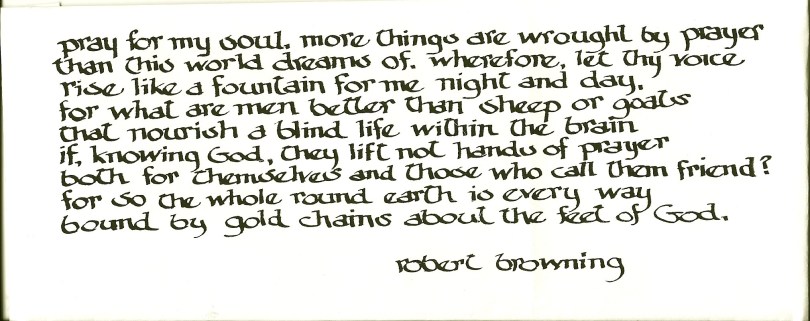 pray for my soul. more things are wrought by prayer
than this world dreams of. wherefore, let thy voice
rise like a fountain for me night and day.
for what are men better than sheep or goats
that nourish a blind life within the brain
if, knowing God, they lift not hands of prayer
both for themselves and those who call them friend?
for so the whole round earth is every way
bound by gold chains about the feet of God.
robert browning